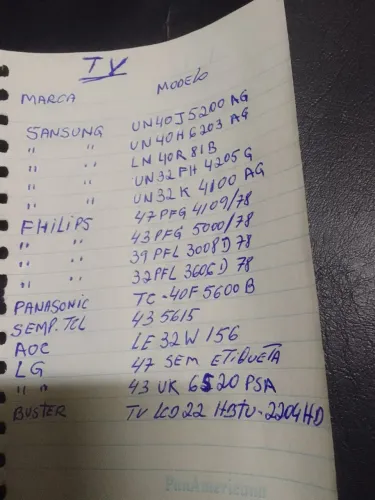 TV
MARCA MODELO
SANSUNG UN40J5200 AG
" " UN40H6203 AG
" " LN 40R 81B
" " UN32FH 4205G
" " UN32K 4100 AG
FHILIPS 47PFG 4109/78
" " 43PFG 5000/78
" " 39PFL 3008D 78
" " 32PFL 3606D 78
PANASONIC TC-40F5600B
SEMP.TCL 43 5615
AOC LE 32W 156
LG 47 SEM ETIQUETA
" " 43 UK 6520 PSA
BUSTER TV LCD22 HBTV-2204HD
PanAmericana